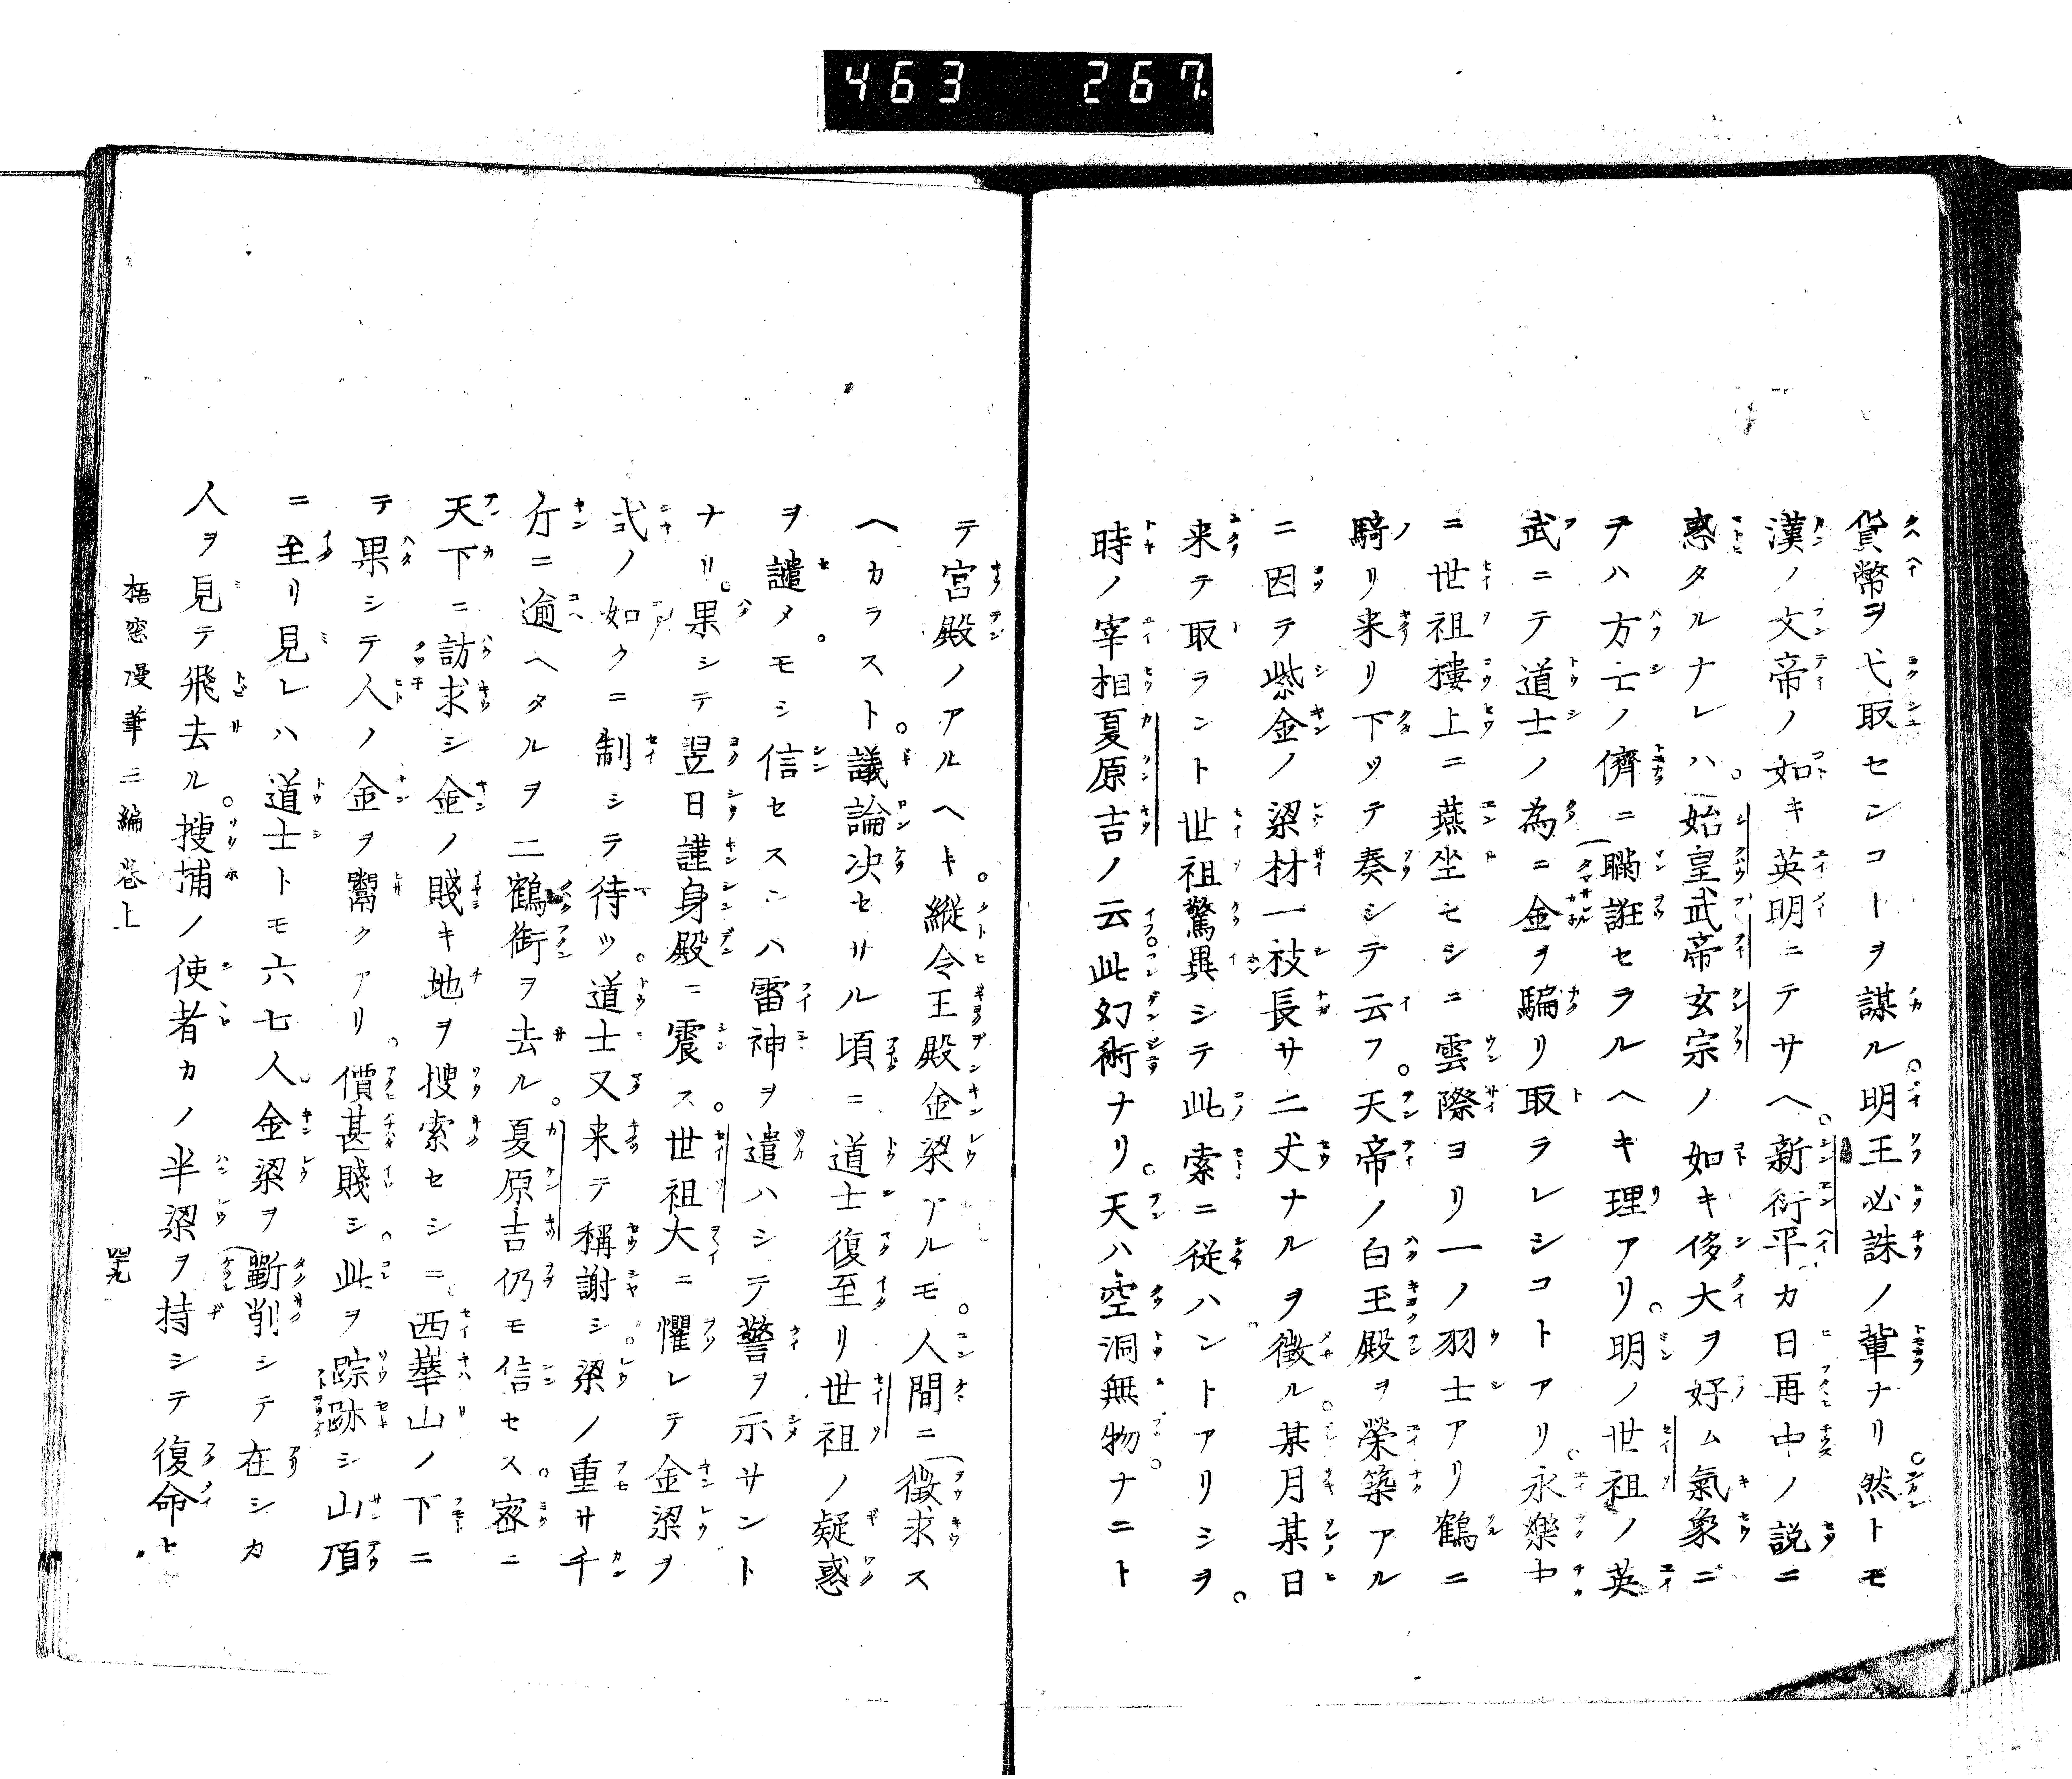 463 267
貨幣ヲ弋取センコトヲ謀ル明王必誅ノ輩ナリ然トモ
漢ノ文帝ノ如キ英明ニテサヘ新衍平カ日再中ノ説ニ
惑タルナレハ始皇武帝玄宗ノ如キ侈大ヲ好ム氣象ニ
テハ方士ノ儕ニ瞞誑セラルヘキ理アリ明ノ世祖ノ英
武ニテ道士ノ為ニ金ヲ騙リ取ラレシコトアリ永樂中
ニ世祖樓上ニ燕坐セシニ雲際ヨリ一ノ羽士アリ鶴ニ
騎リ来リ下ツテ奏シテ云フ天帝ノ白玉殿ヲ榮築アル
ニ因テ紫金ノ梁材一枝長サ二丈ナルヲ徴ル某月某日
来テ取ラント世祖驚異シテ此索ニ従ハントアリシヲ
時ノ宰相夏原吉ノ云此幻術ナリ天ハ空洞無物ナニト
テ宮殿ノアルヘキ縦令王殿金梁アルモ人間ニ徴求ス
ヘカラスト議論决セサル頃ニ道士復至リ世祖ノ疑惑
ヲ譴メモシ信セスンハ雷神ヲ遣ハシテ警ヲ示サント
ナリ果シテ翌日謹身殿ニ震ス世祖大ニ懼レテ金梁ヲ
式ノ如クニ制シテ待ツ道士又来テ稱謝シ梁ノ重サ千
斤ニ逾ヘタルヲ二鶴銜ヲ去ル夏原吉仍モ信セス密ニ
天下ニ訪求シ金ノ賤キ地ヲ捜索セシニ西華山ノ下ニ
テ果シテ人ノ金ヲ鬻クアリ價甚賤シ此ヲ踪跡シ山頂
ニ至リ見レハ道士トモ六七人金梁ヲ斷削シテ在シカ
人ヲ見テ飛去ル捜捕ノ使者カノ半梁ヲ持シテ復命ト
梧窓漫筆三編巻上